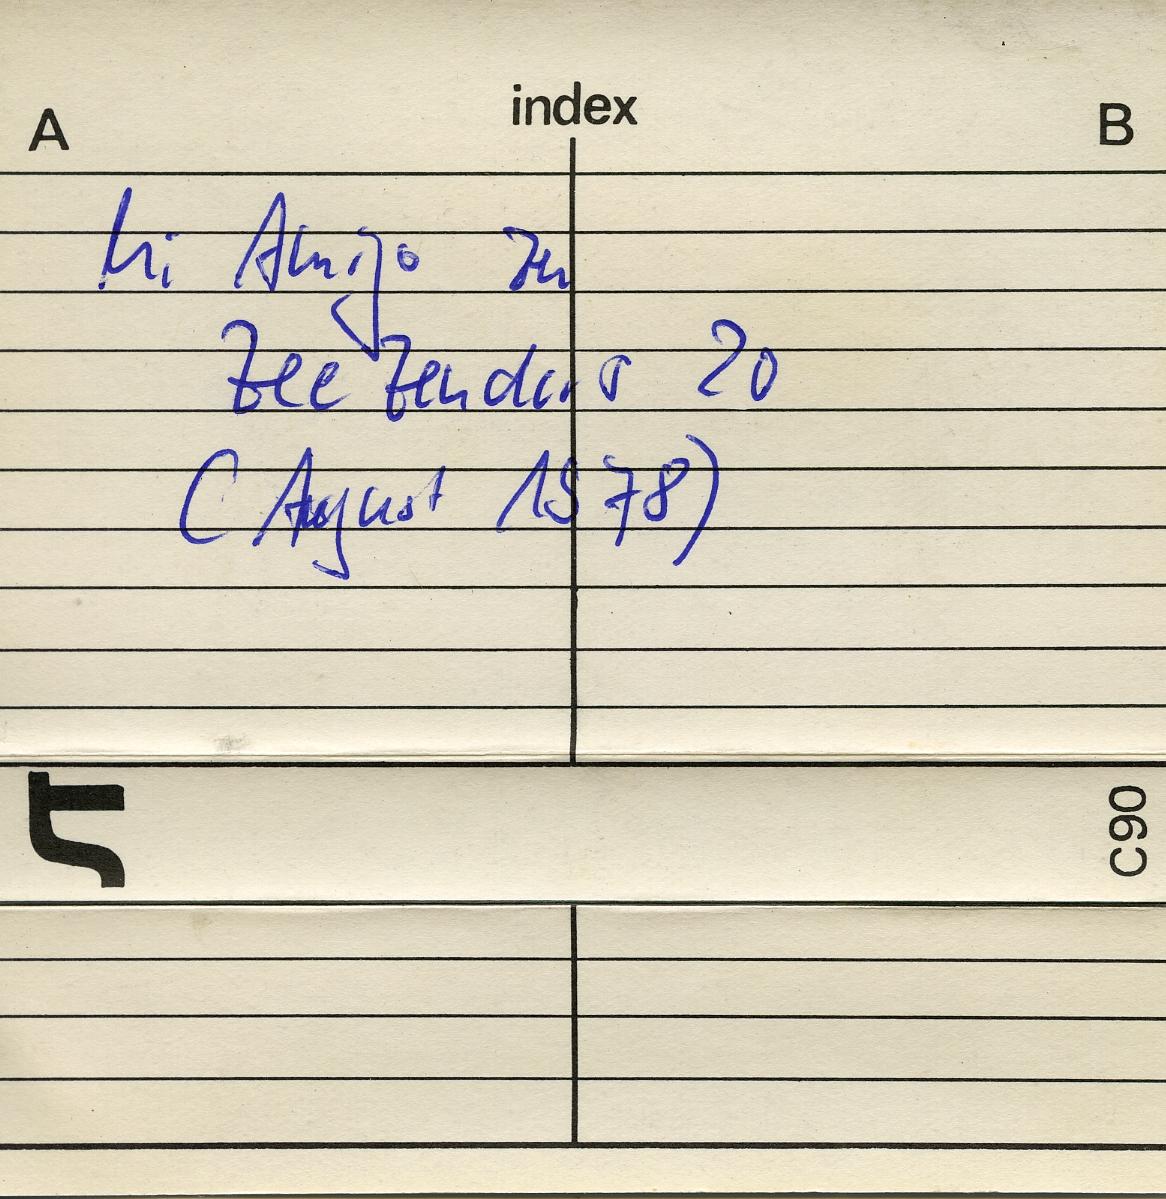 A index B
Mi Amigo zu
Zeezenders 20
(August 1978)
C90